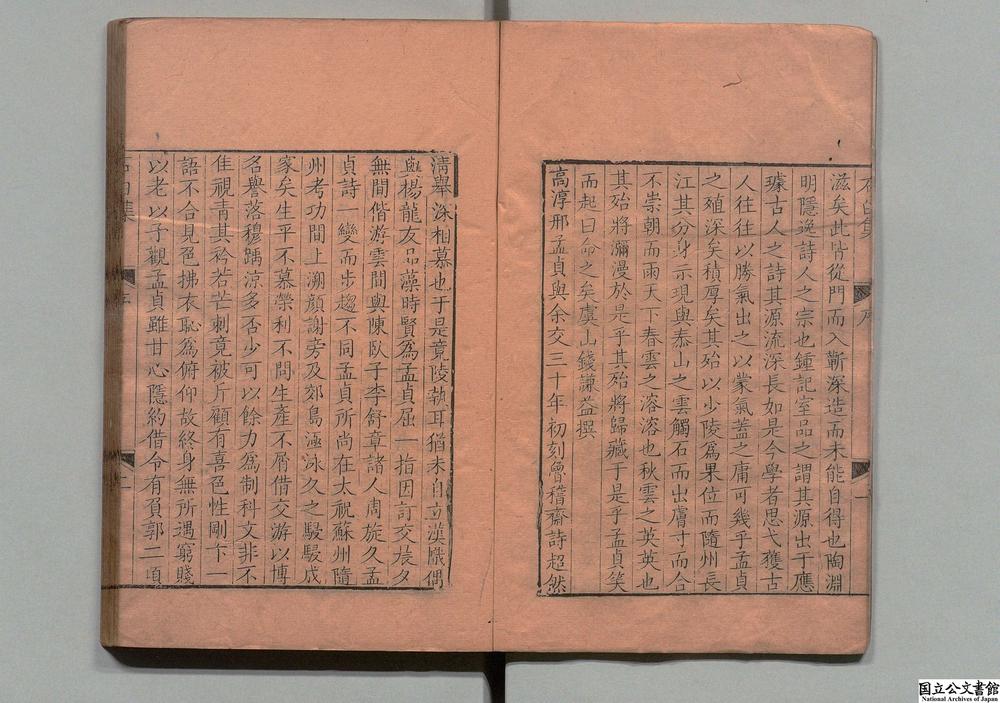 石臼集 序 一
滋矣此皆從門而入蘄深造而未能自得也陶淵
明隱逸詩人之宗也鍾記室品之謂其源出于應
璩古人之詩其源流深長如是今學者思弋獲古
人往往以勝氣出之以蒙氣蓋之庸可幾乎孟貞
之殖深矣積厚矣其殆以少陵爲果位而隨州長
江其分身示現與泰山之雲觸石而出膚寸而合
不崇朝而雨天下春雲之溶溶也秋雲之英英也
其殆將瀰漫於是乎其殆將歸藏于是乎孟貞笑
而起曰命之矣虞山錢謙益撰
高淳邢孟貞與余交三十年初刻鱠稽齋詩超然
清舉深相慕也于是竟陵執耳猶未自立漢幟偶
與楊龍友品藻時賢爲孟貞屈一指因訂交晨夕
無間偕游雲間與陳臥子李舒章諸人周旋久孟
貞詩一變而步趨不同孟貞所尚在太祝蘇州隨
州考功間上溯顏謝旁及郊島涵泳久之駸駸成
家矣生平不慕榮利不問生產不屑借交游以博
名譽落穆踽涼多否少可以餘力爲制科文非不
佳視青其衿若芒刺竟被斥顧有喜色性剛卞一
語不合見色拂衣恥爲俯仰故終身無所遇窮賤
以老以予觀孟貞雖甘心隱約借令有負郭二頃
石臼集 序 二
国立公文書館
National Archives of Japan